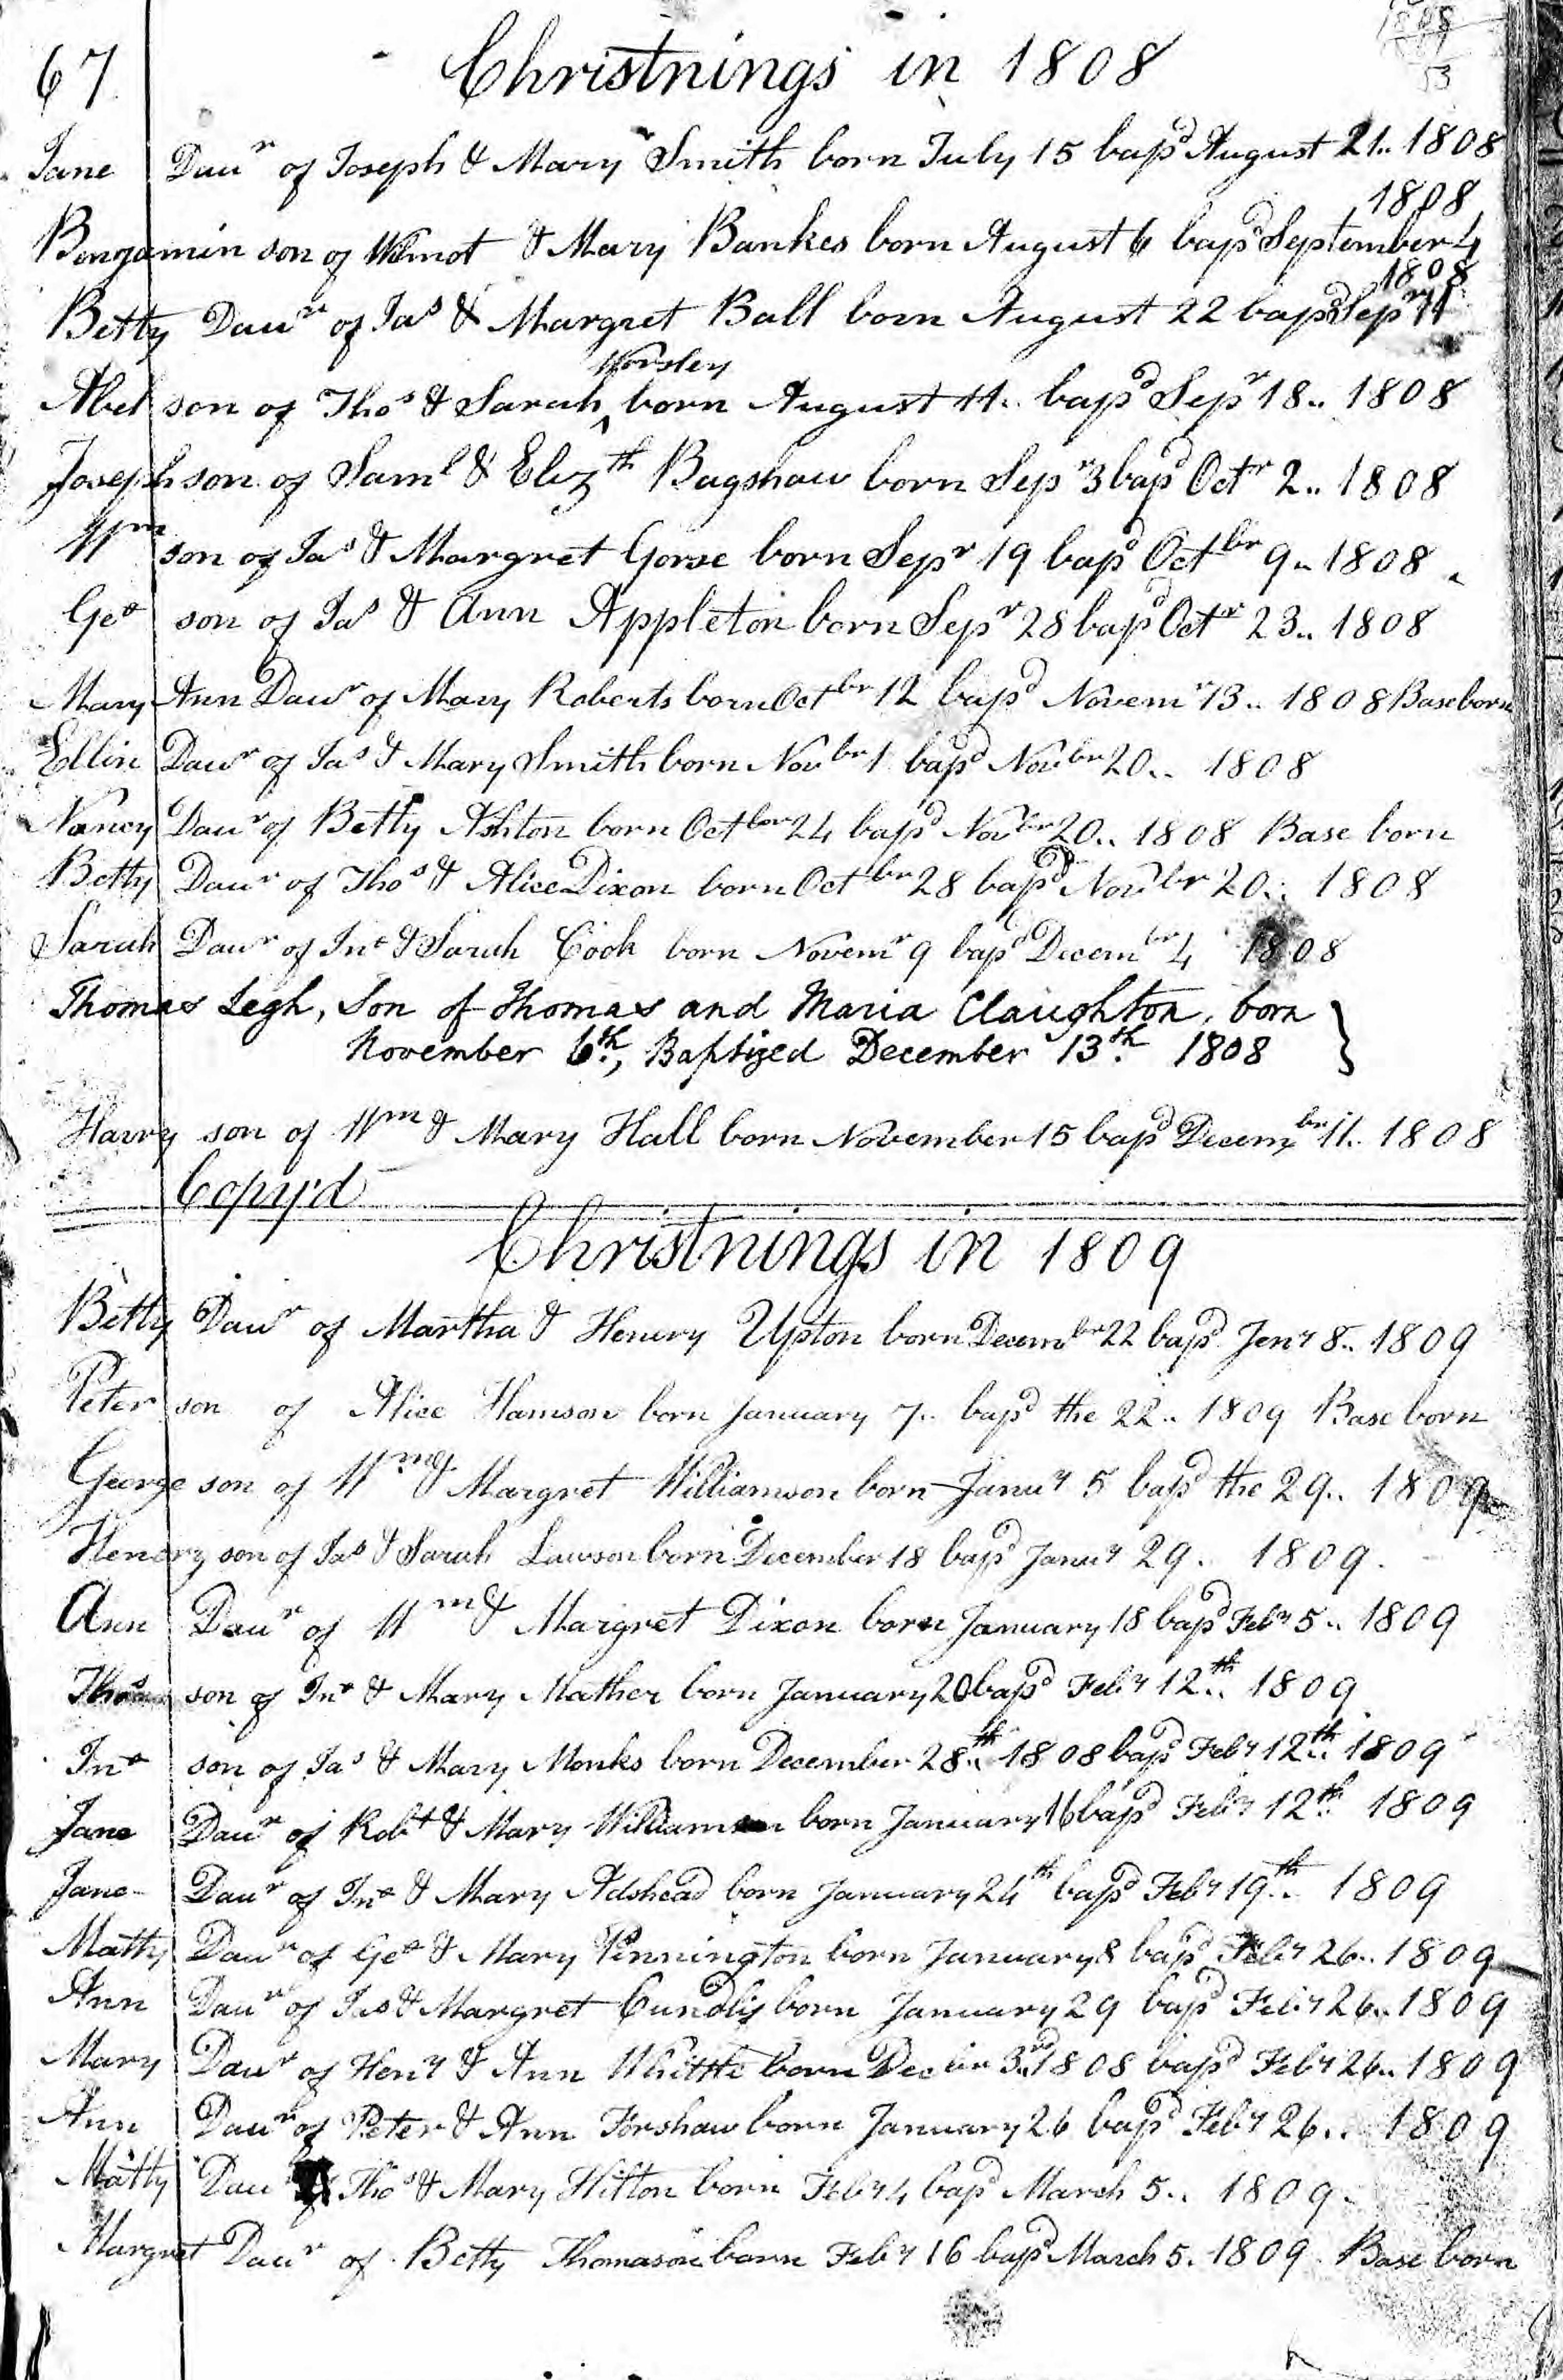 67 Christnings in 1808
1808
53
Jane Daur of Joseph & Mary Smith born July 15 bapd August 21.. 1808
1808
Bengamin son of Wilmot & Mary Bankes born August 6 bapd September 4
1808
Betty Daur of Jas & Margret Ball born August 22 bapd Sepr 11
Worsley
Abel son of Thos & Sarah ‸ born August 11.. bapd Sepr 18.. 1808
Joseph son of Saml & Elizth Bagshaw born Sepr 3 bapd Octr 2.. 1808
Wm son of Jas & Margret Gorse born Sepr 19 bapd Octbr 9.. 1808
Geo son of Jas & Ann Appleton born Sepr 28 bapd Octr 23.. 1808
Mary Ann Daur of Mary Roberts born Octbr 12 bapd Novemr 13.. 1808 Base born
Ellin Daur of Jas & Mary Smith born Novbr 1 bapd Novbr 20.. 1808
Nancy Daur of Betty Ashton born Octbr 24 bapd Novbr 20.. 1808 Base born
Betty Daur of Thos & Alice Dixon born Octbr 28 bapd Novbr 20.. 1808
Sarah Daur of Jno & Sarah Cook born Novemr 9 bapd Decembr 4 1808
Thomas Legh, Son of Thomas and Maria Claughton, born
November 6th, Baptized December 13th 1808 }
Harry son of Wm & Mary Hall born November 15 bapd Decembr 11.. 1808
Copy'd
Christnings in 1809
Betty Daur of Martha & Henery Upton born Decembr 22 bapd Jeny 8.. 1809
Peter son of Alice Hamson born January 7.. bapd the 22.. 1809 Base born
George son of Wm & Margret Williamson born Januy 5 bapd the 29.. 1809
Henery son of Jas & Sarah Lawson born December 18 bapd Januy 29. 1809.
Ann Daur of Wm & Margret Dixon born January 18 bapd Feby 5.. 1809
Thos son of Jno & Mary Mather born January 20 bapd Feby 12th.. 1809
Jno son of Jas & Mary Monks born December 28th.. 1808 bapd Feby 12th.. 1809
Jane Daur of Robt & Mary Williamson born January 16 bapd Feby 12th.. 1809
Jane Daur of Jno & Mary Adshead born January 24th bapd Feby 19th.. 1809
Matty Daur of Geo & Mary Pinnington born January 8 bapd Feby 26.. 1809
Ann Daur of Jas & Margret Cundliy born January 29 bapd Feby 26.. 1809
Mary Daur of Heny & Ann Whittle born Decbr 3rd 1808 bapd Feby 26.. 1809
Ann Daur of Peter & Ann Forshaw born January 26 bapd Feby 26.. 1809
Matty Dau of Thos & Mary Hitton born Feby 4 bapd March 5.. 1809.
Margret Daur of Betty Thomason born Feby 16 bapd March 5. 1809. Base born